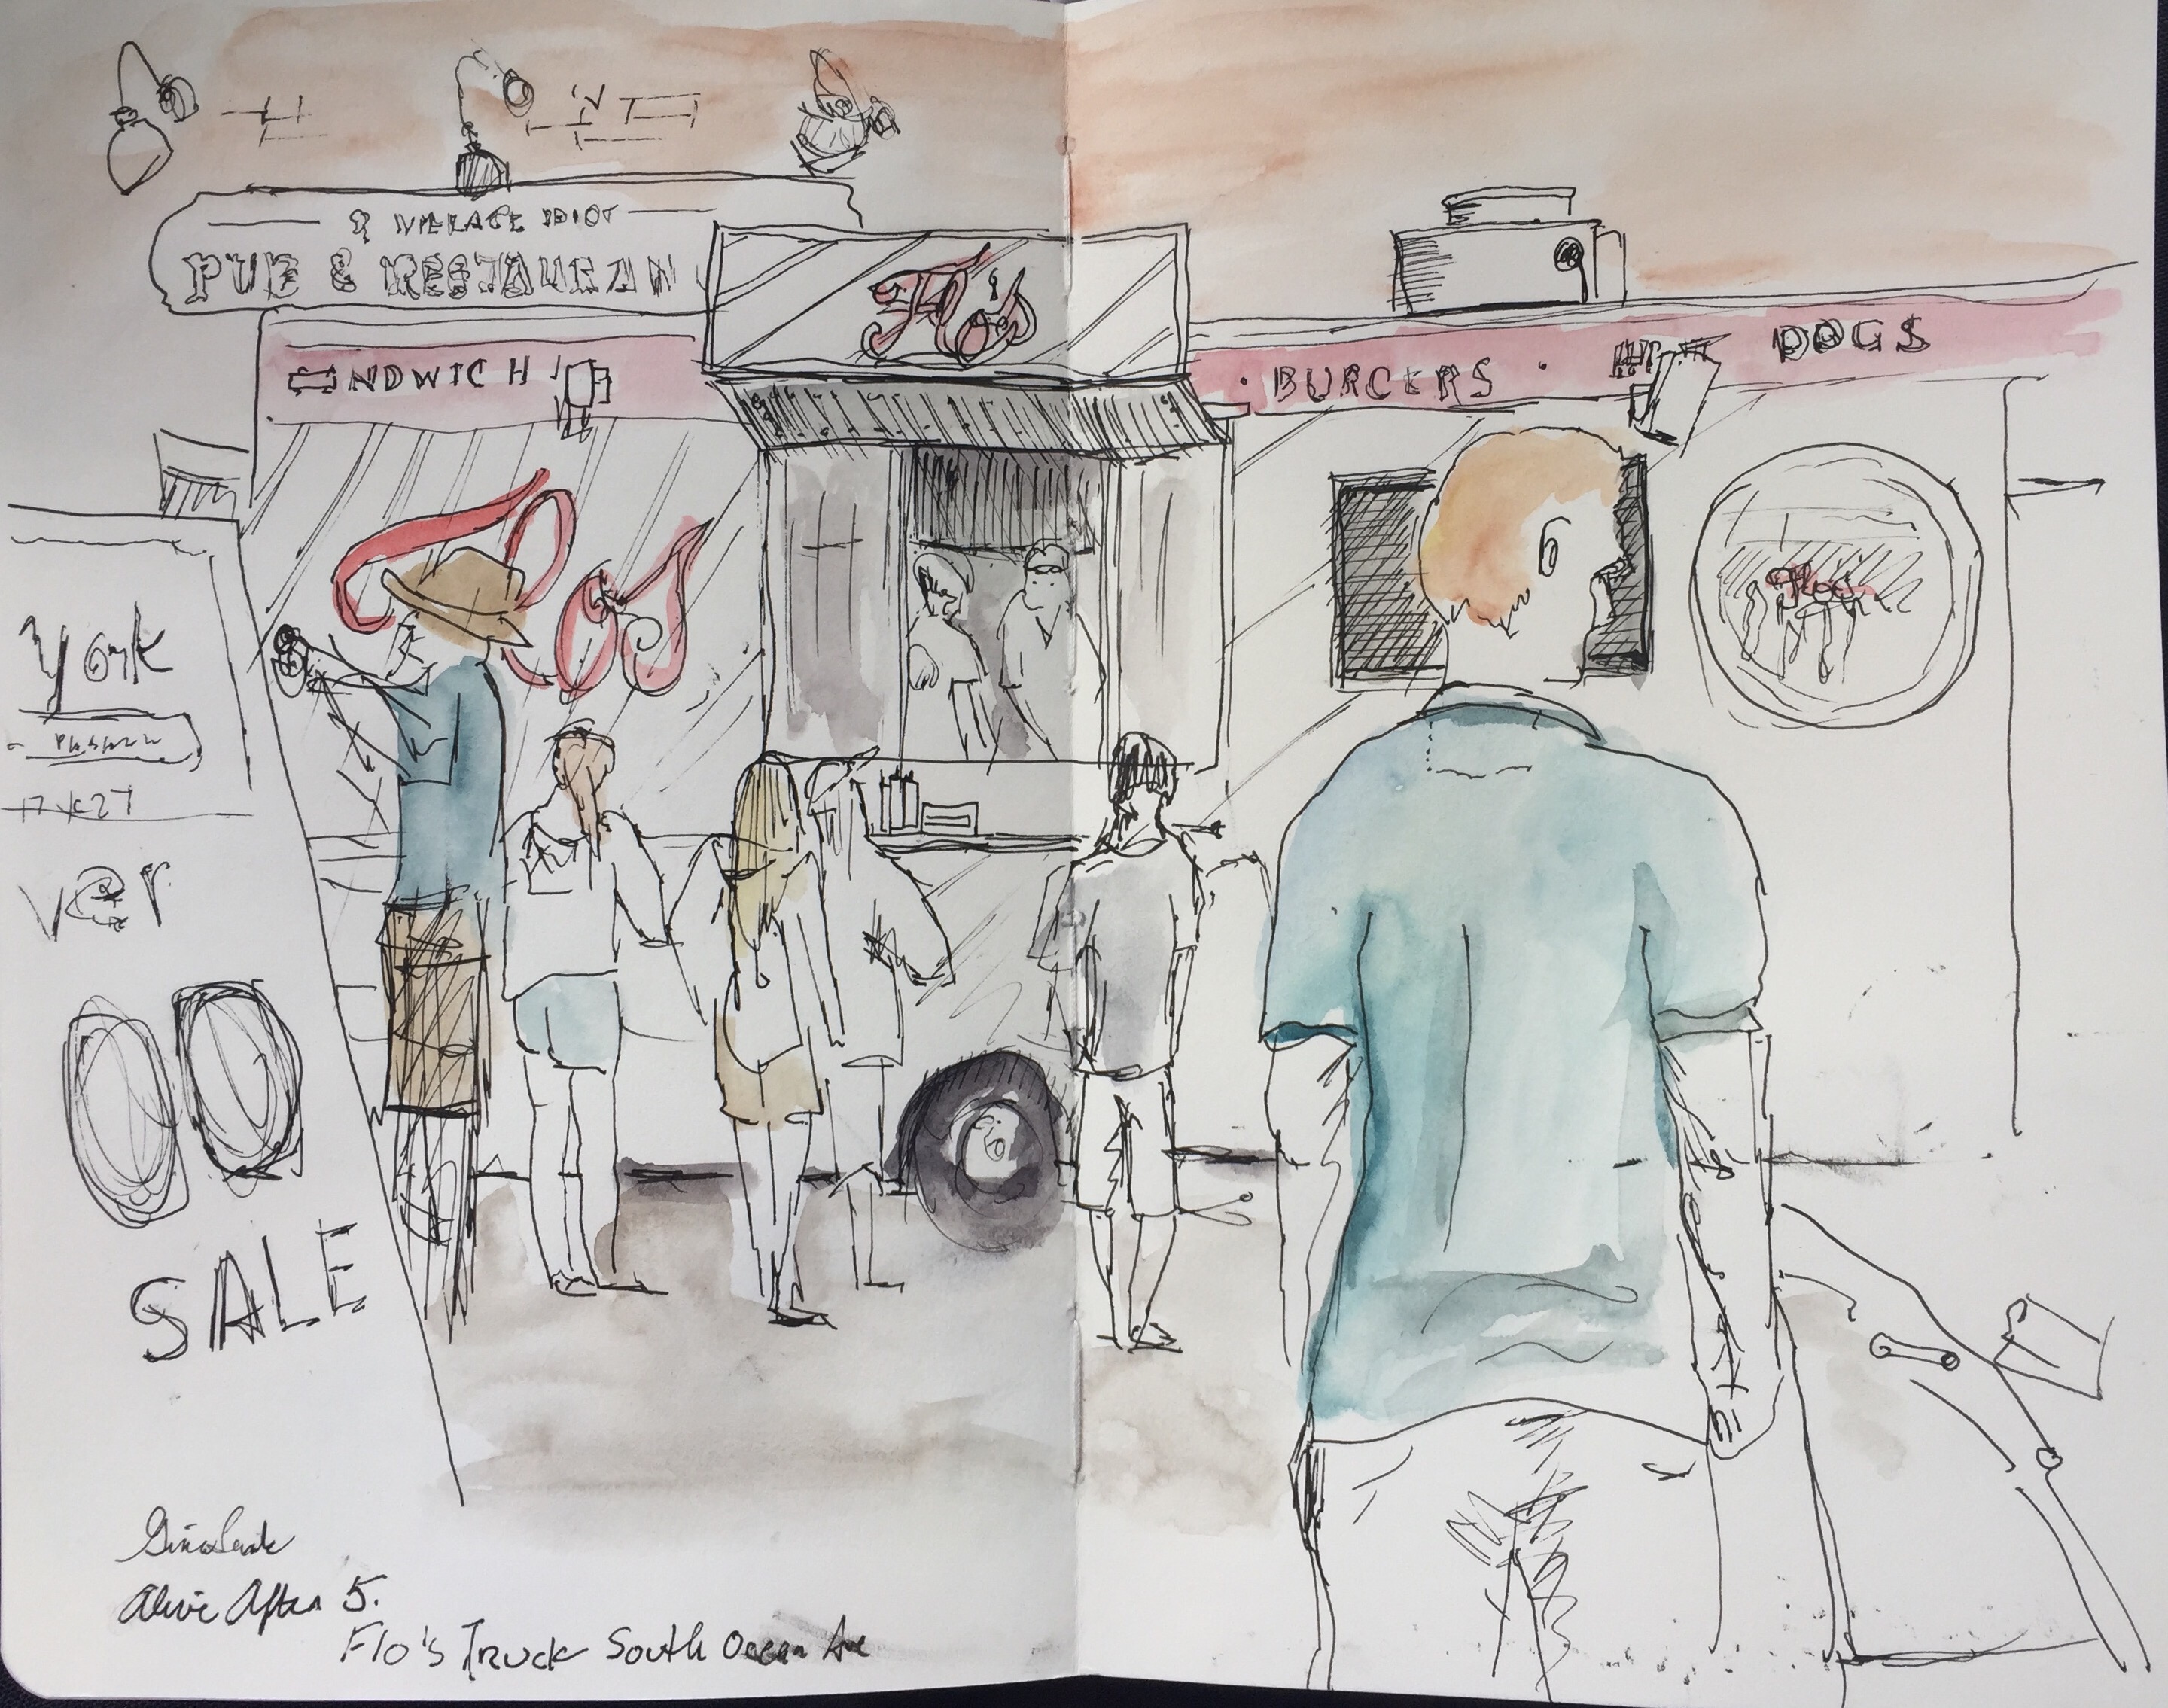 VILLAGE IDIOT
PUB & RESTAURAN
Flo's
NDWICH
· BURGERS · DOGS
Flo's
York
ver
SALE
Alive After 5.
Flo's Truck South Ocean Ave